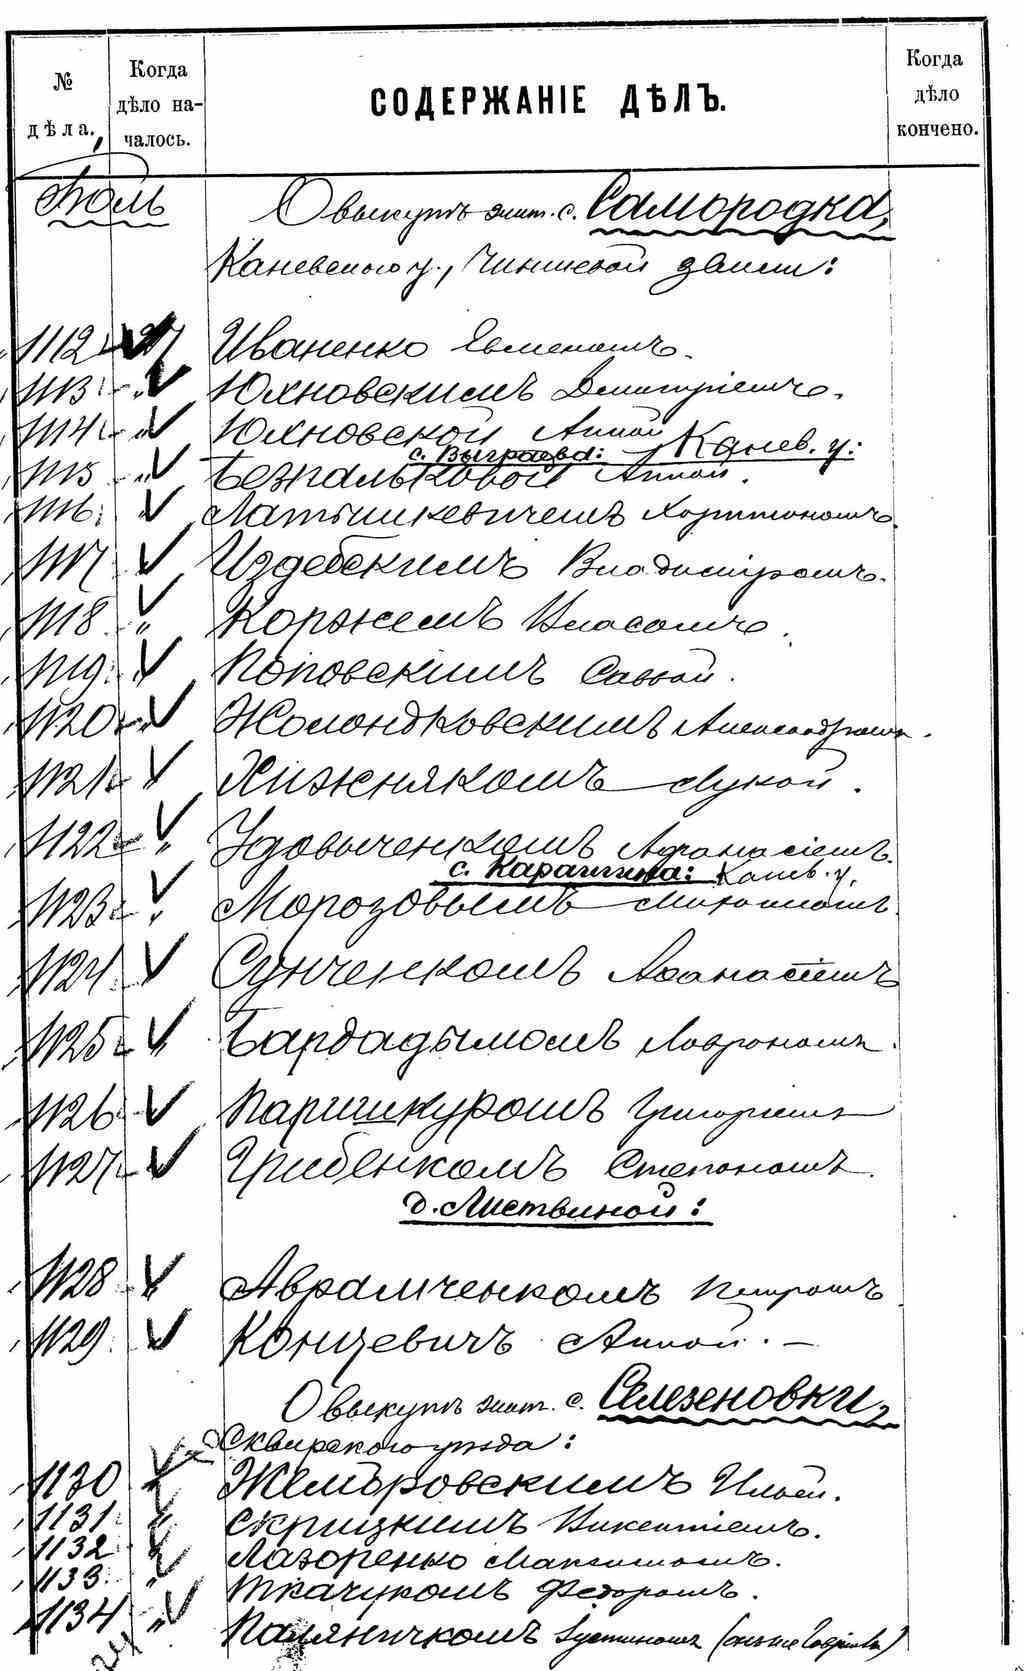 № дѣла.
Когда дѣло началось.
СОДЕРЖАНІЕ ДѢЛЪ.
Когда дѣло кончено.
О выкупѣ жит. с. Самородка,
Каневского у., Чиншевой земли:
1112 Иваненко Евменомъ.
1113 " Юхновскимъ Дмитріемъ.
1114 " Юхновской Анной
с. Выграева: Канев. у:
1115 " Безпальковой Анной.
1116 " Латышкевичемъ Харитономъ.
1117 " Издебскимъ Владиміромъ.
1118 " Коржемъ Власомъ.
1119 " Поповскимъ Саввой.
1120 " Жолондковскимъ Александромъ.
1121 " Хижнякомъ Лукой.
1122 " Удовыченкомъ Афанасіемъ.
с. Карапыша: Канев. у.
1123 " Морозовымъ
1124 " Сунченкомъ Афанасіемъ
1125 " Бардадымомъ
1126 " Паришкуромъ Григоріемъ
1127 " Грибенкомъ Степаномъ.
д. Листвиной:
1128 " Аврамченкомъ Петромъ
1129 " Концевичъ Анной. —
О выкупѣ жит. с. Селезеновки,
Сквирского уѣзда:
1130 " Жембровскимъ Ильей.
1131 " Скрицкимъ Викентіемъ.
1132 " Лазоренко Максимомъ.
1133 " Ткачукомъ Федоромъ.
1134 " Паляничкомъ Іустиномъ